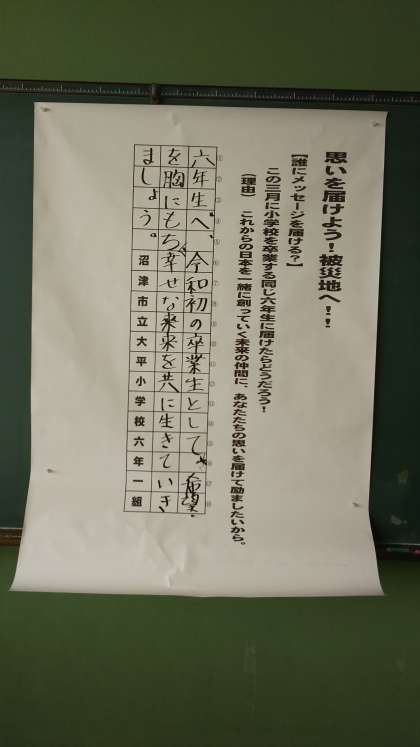 思いを届けよう！被災地へ！！
【誰にメッセージを届ける？】
この三月に小学校を卒業する同じ六年生に届けたらどうだろう！
（理由）　これからの日本を一緒に創っていく未来の仲間に、あなたたちの思いを届けて励ましたいから。
六年生へ、令和初の卒業生として、希望
を胸にもち、幸せな未来を共に生きていき
ましょう。沼津市立大平小学校六年一組